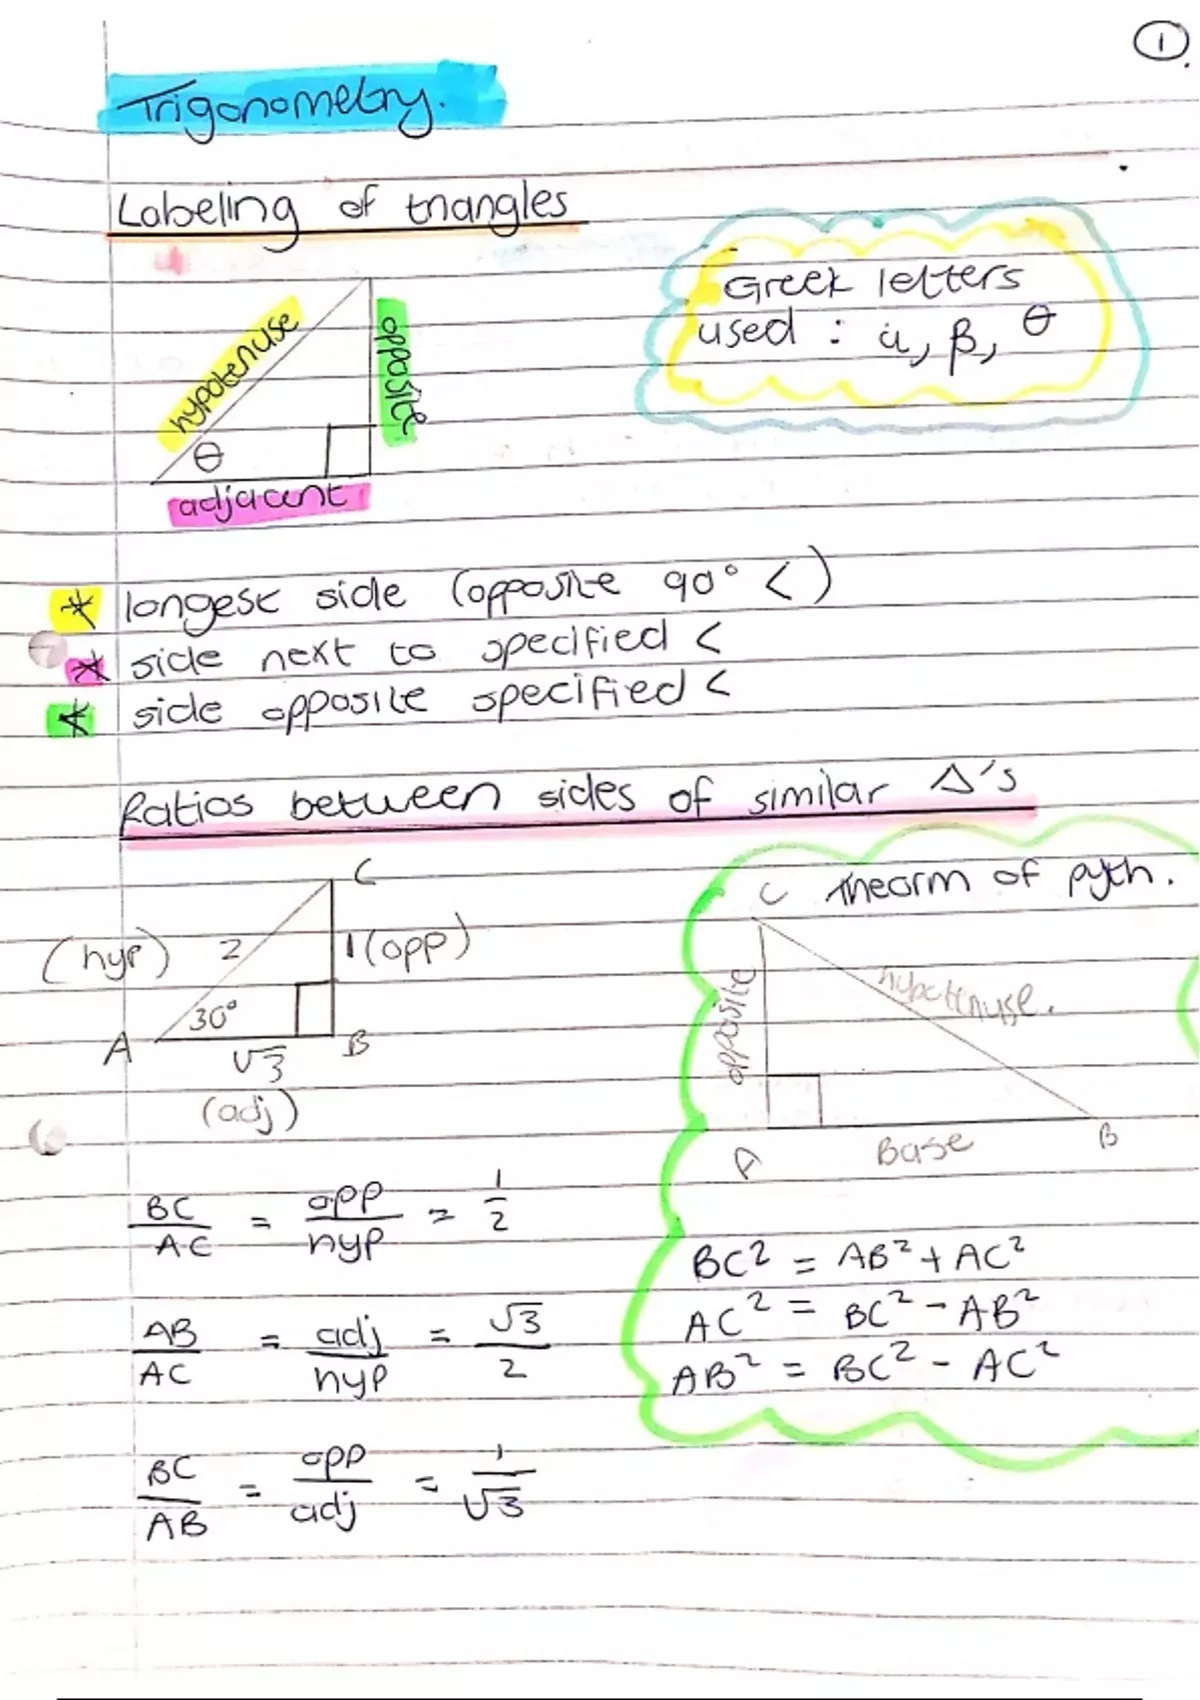 1
Trigonometry.
Labeling of triangles
hypotenuse
opposite
θ
adjacent
Greek letters
used : α, β, θ
* longest side (opposite 90° <)
* side next to specified <
* side opposite specified <
Ratios between sides of similar Δ's
C
(hyp) 2
1 (opp)
30°
A
√3
B
(adj)
BC/AC = opp/hyp = 1/2
AB/AC = adj/hyp = √3/2
BC/AB = opp/adj = 1/√3
Theorm of pyth.
C
opposite
hypotenuse.
A
Base
B
BC² = AB² + AC²
AC² = BC² - AB²
AB² = BC² - AC²